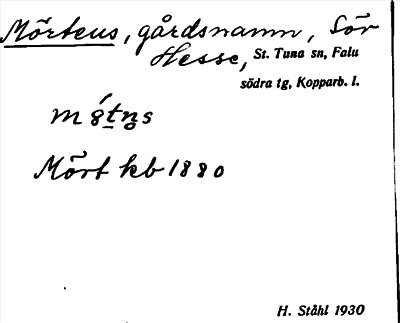 Mörteus, gårdsnamn, Sör
Hesse, St. Tuna sn, Falu
södra tg, Kopparb. l.
Mört kb 1880
H. Ståhl 1930